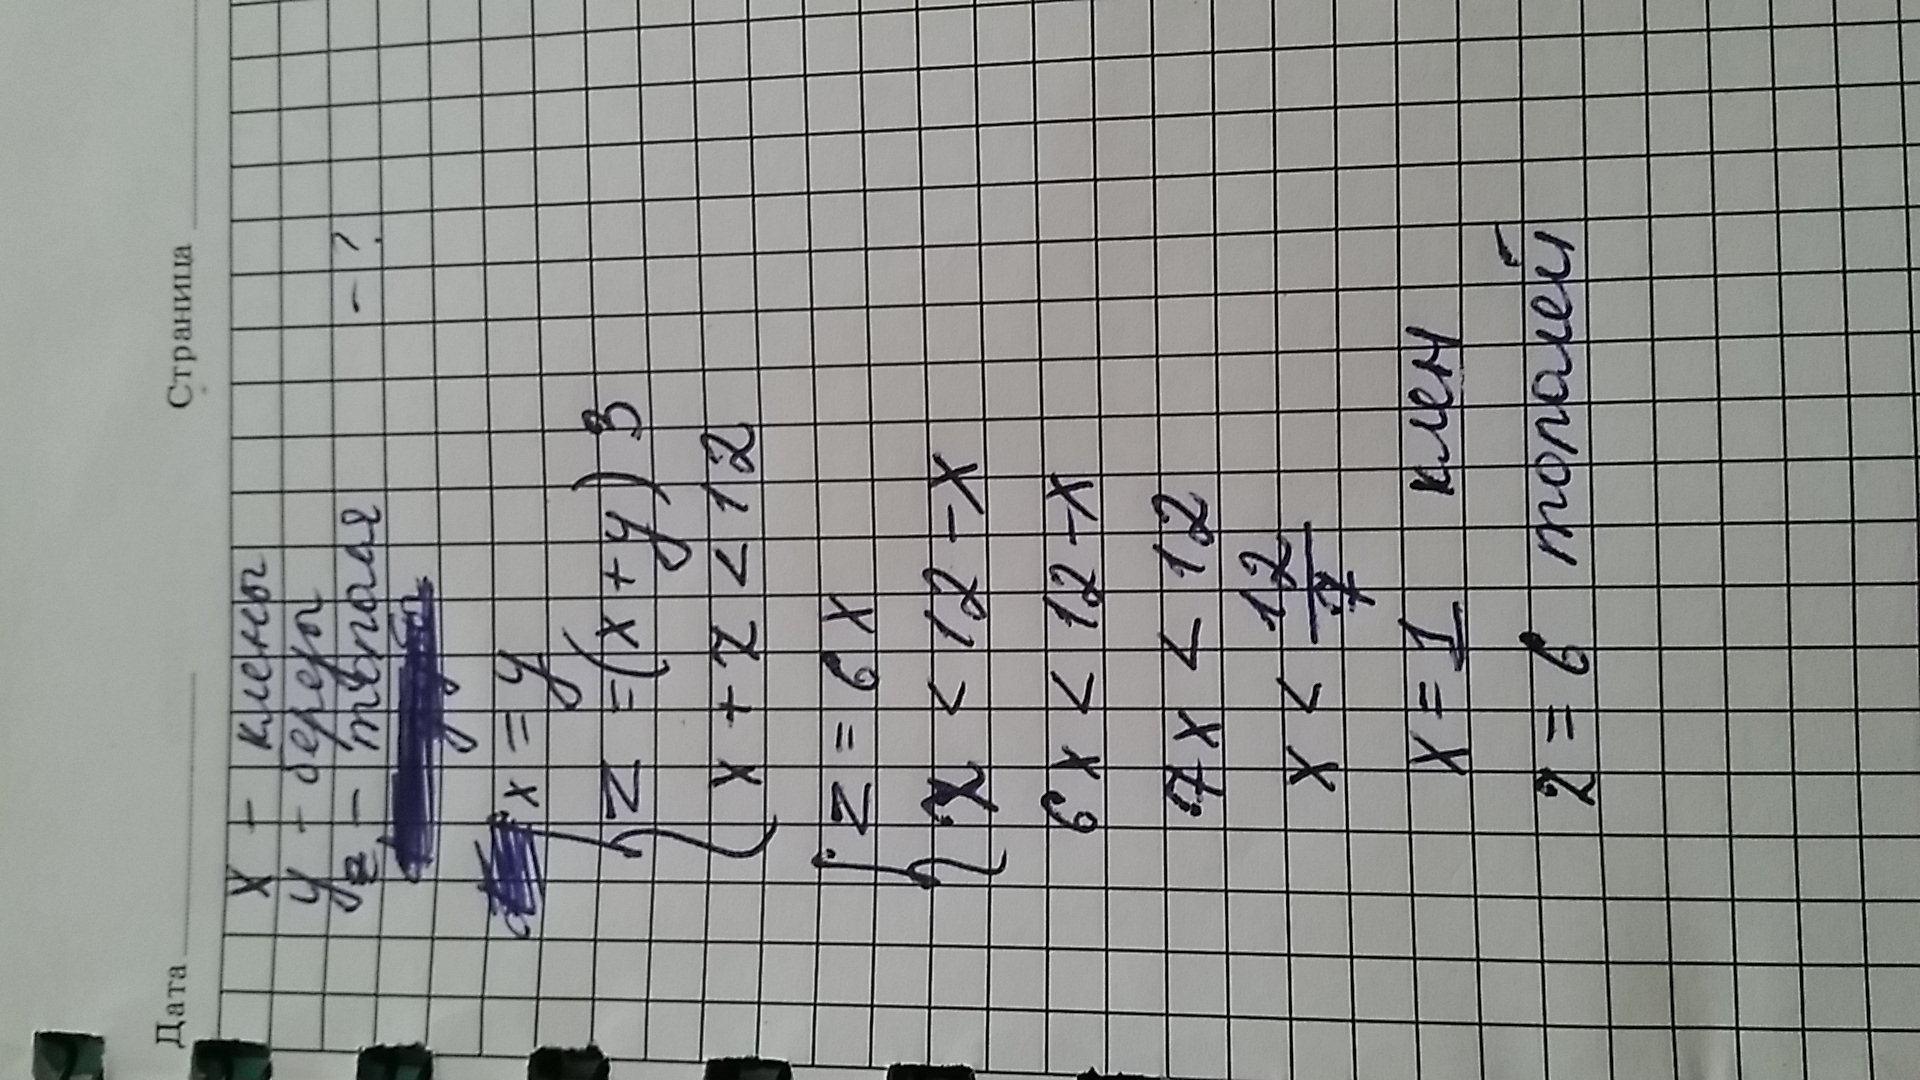 Дата Страница
x - клены
y - березы
z - тополя - ?
x = y
z = (x + y) 3
x + z < 12
z = 6x
z < 12 - x
6x < 12 - x
7x < 12
x < 12/7
x = 1 клен
z = 6 тополей